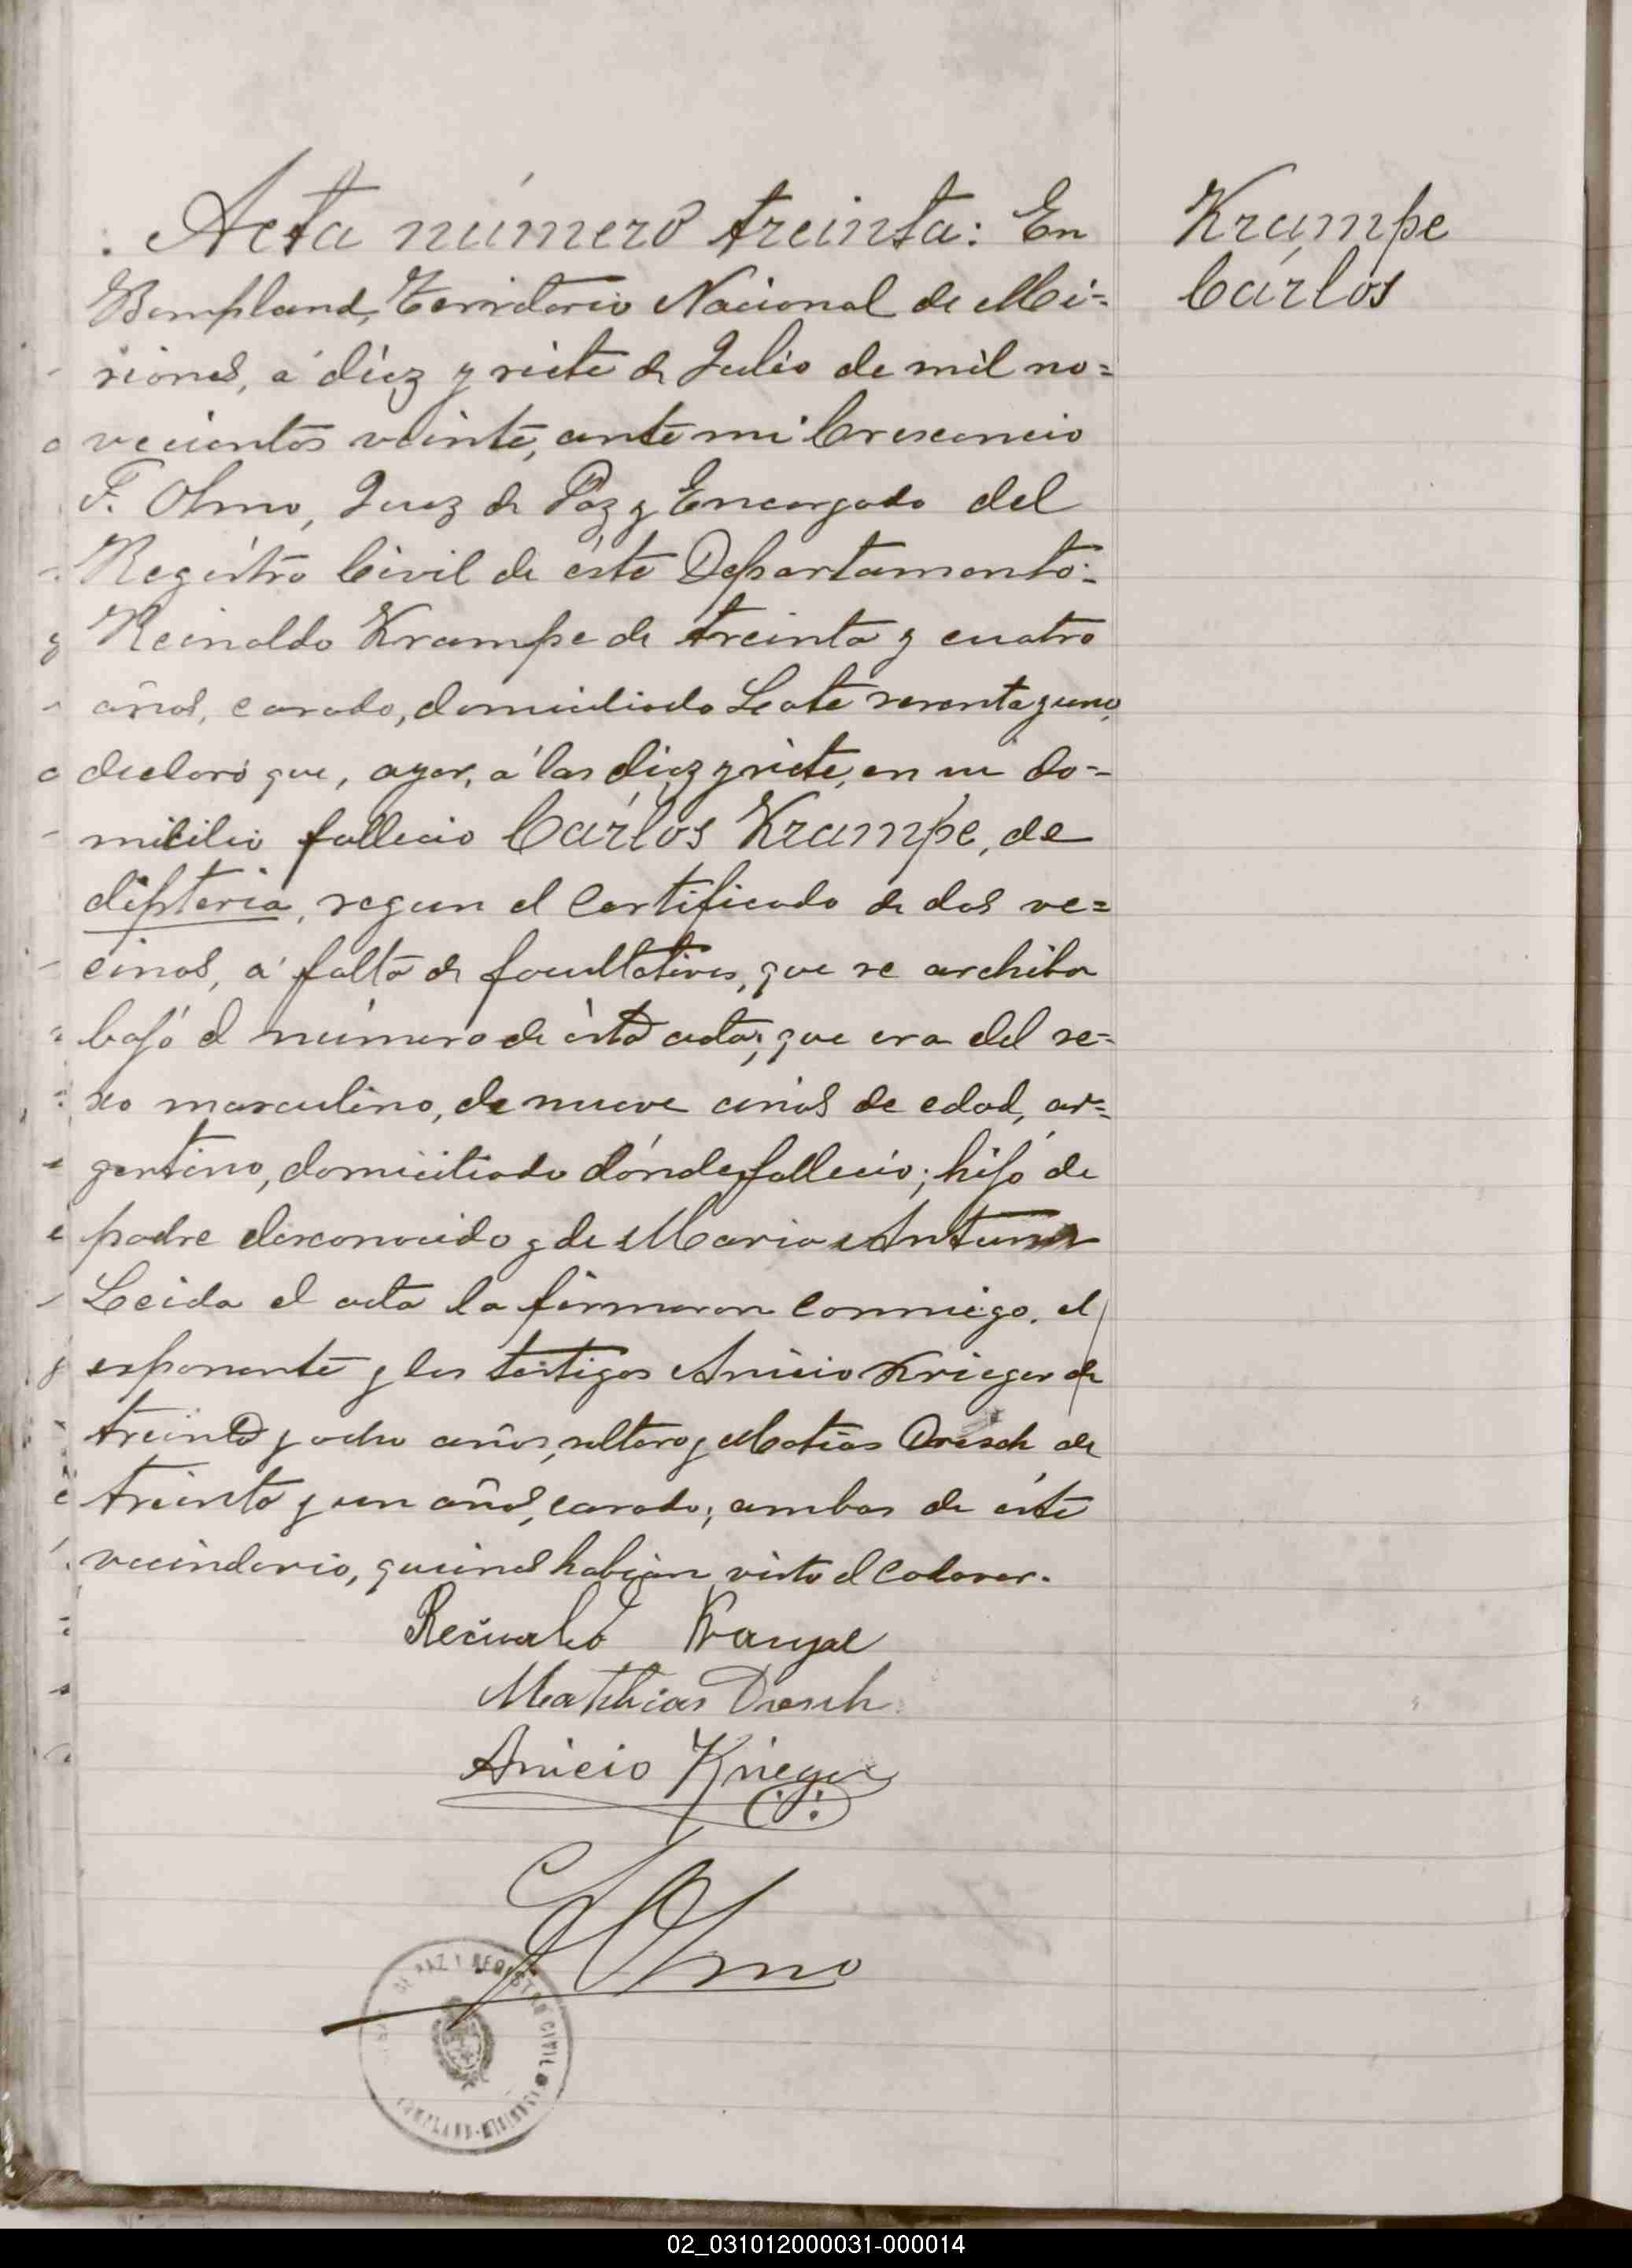 Acta número treinta: En
Bompland, Territorio Nacional de Mi=
siones, á diez y siete de Julio de mil no=
vecientos veinte, ante mi Crescencio
F. Olmo, Juez de Paz y Encargado del
Registro Civil de éste Departamento:
Reinaldo Krampe de treinta y cuatro
años, casado, domiciliado Lote sesenta y uno,
declaró que, ayer, á las diez y siete, en su do=
micilio falleció Cárlos Krampe, de
difteria, segun el Certificado de dos ve=
cinos, á falta de facultativos, que se archiba
bajó el número de ésta acta; que era del se=
xo masculino, de nueve años de edad, ar=
gentino, domiciliado dónde falleció; hijó de
padre desconocido y de Maria Antunes
Leida el acta la firmaron conmigo, el
exponente y los testigos Anicio Krieger de
treinta y ocho años, soltero y Matias Dresch de
treinta y un años, casado; ambos de éste
vecindario, quienes habian visto el cadaver.
Krampe
Cárlos
Matthias Dresch
Anicio Krieger
Olmo
DE PAZ Y REGISTRO CIVIL
BOMPLAND-MISIONES
02_031012000031-000014